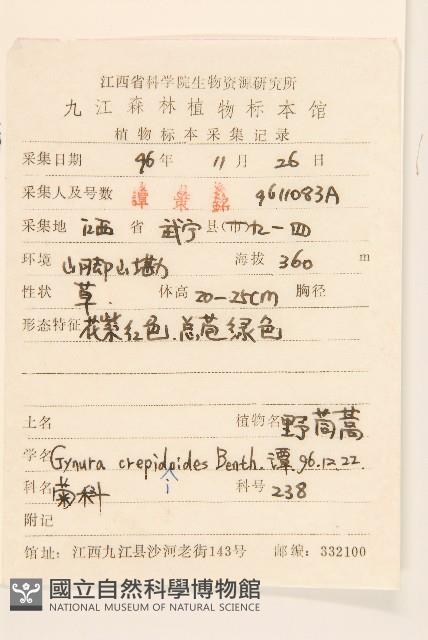 江西省科学院生物资源研究所
九江森林植物标本馆
植物标本采集记录
采集日期 96年 11月 26日
采集人及号数 譚策銘 9611083A
采集地 江西 省 武宁 县(市)九一四
环境 山脚山墈 海拔 360 m
性状 草. 体高 20-25cm 胸径
形态特征 花紫红色.总苞绿色
土名 植物名 野茼蒿
学名 Gynura crepidoides Benth. 譚.96.12.22.
科名 菊科 科号 238
附记
馆址: 江西九江县沙河老街143号 邮编: 332100
國立自然科學博物館
NATIONAL MUSEUM OF NATURAL SCIENCE